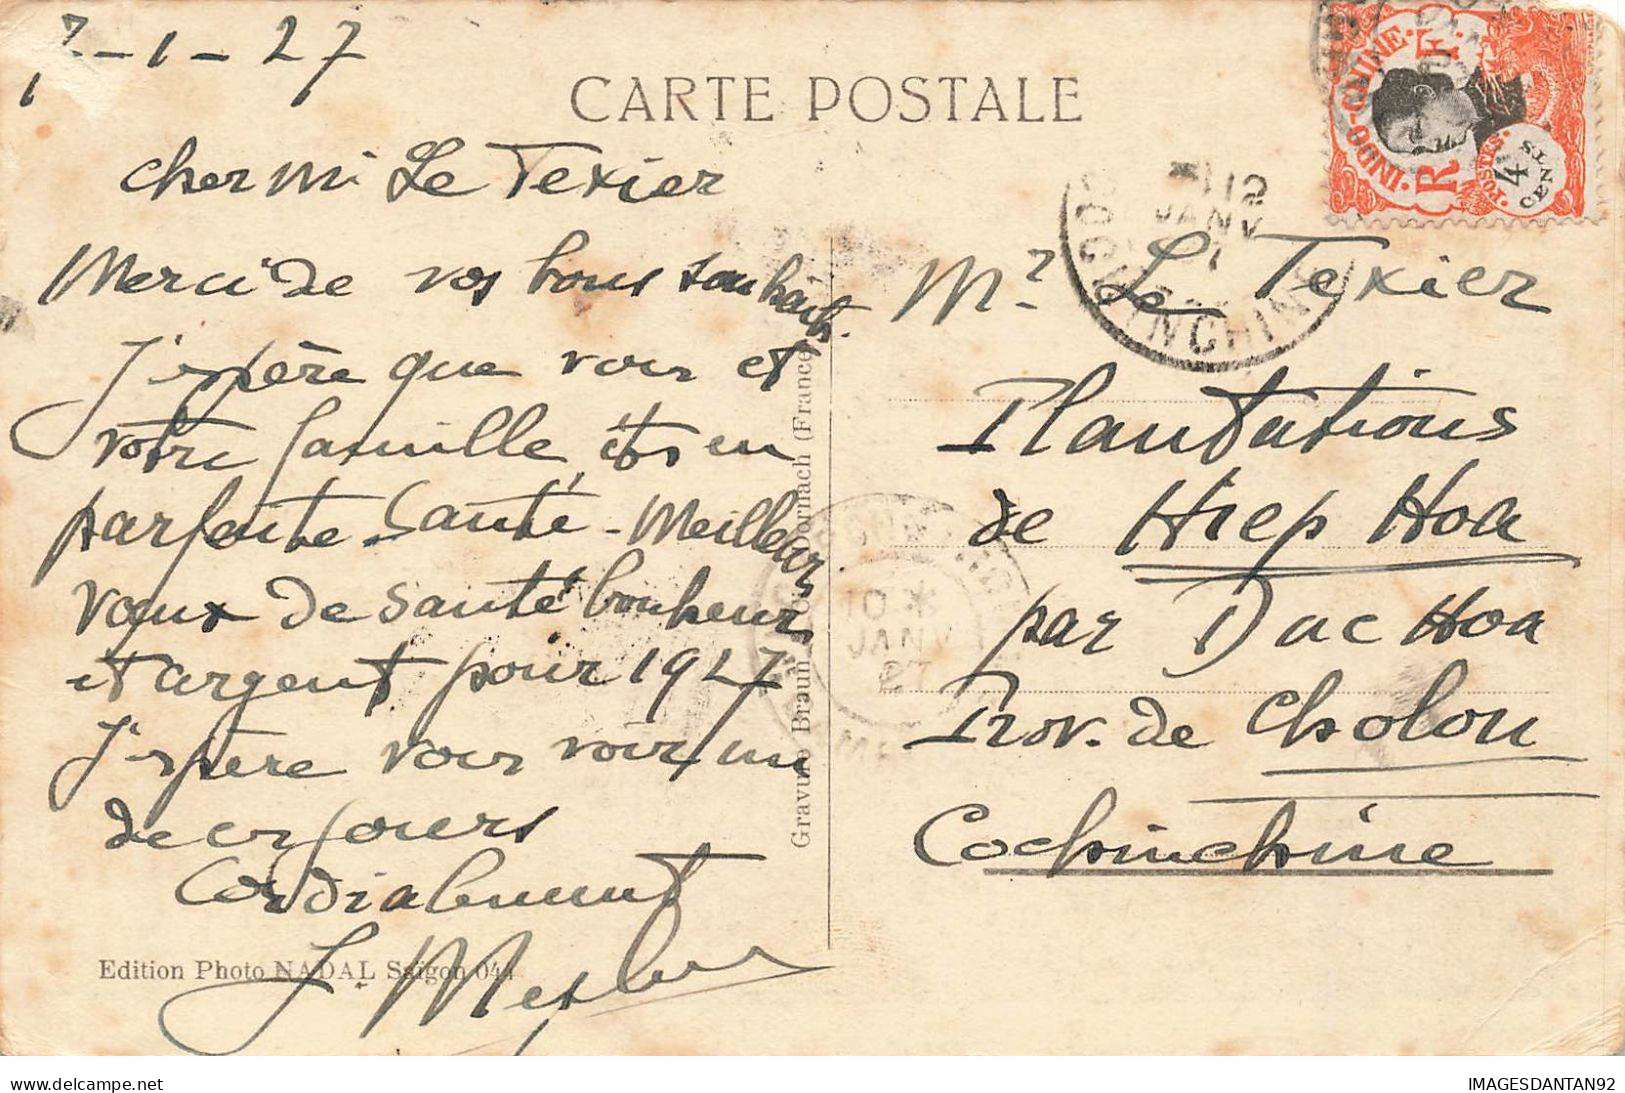 7-1-27
CARTE POSTALE
Cher Mr Le Texier
Merci de vos bons souhaits.
J'espère que vous et
votre famille êtes en
parfaite santé - Meilleurs
vœux de santé bonheur
et argent pour 1927
J'espère vous voir un
de ces jours
Cordialement
Edition Photo NADAL Saigon 044
Gravure Braun Dornach (France)
INDO-CHINE
R F
POSTES
4
CENTS
12
JANV
COCHINCHINE
10 *
JANV
27
Mr Le Texier
Plantations
de Hiep Hoa
par Duc Hoa
Prov. de Cholon
Cochinchine
delcampe.net
IMAGESDANTAN92